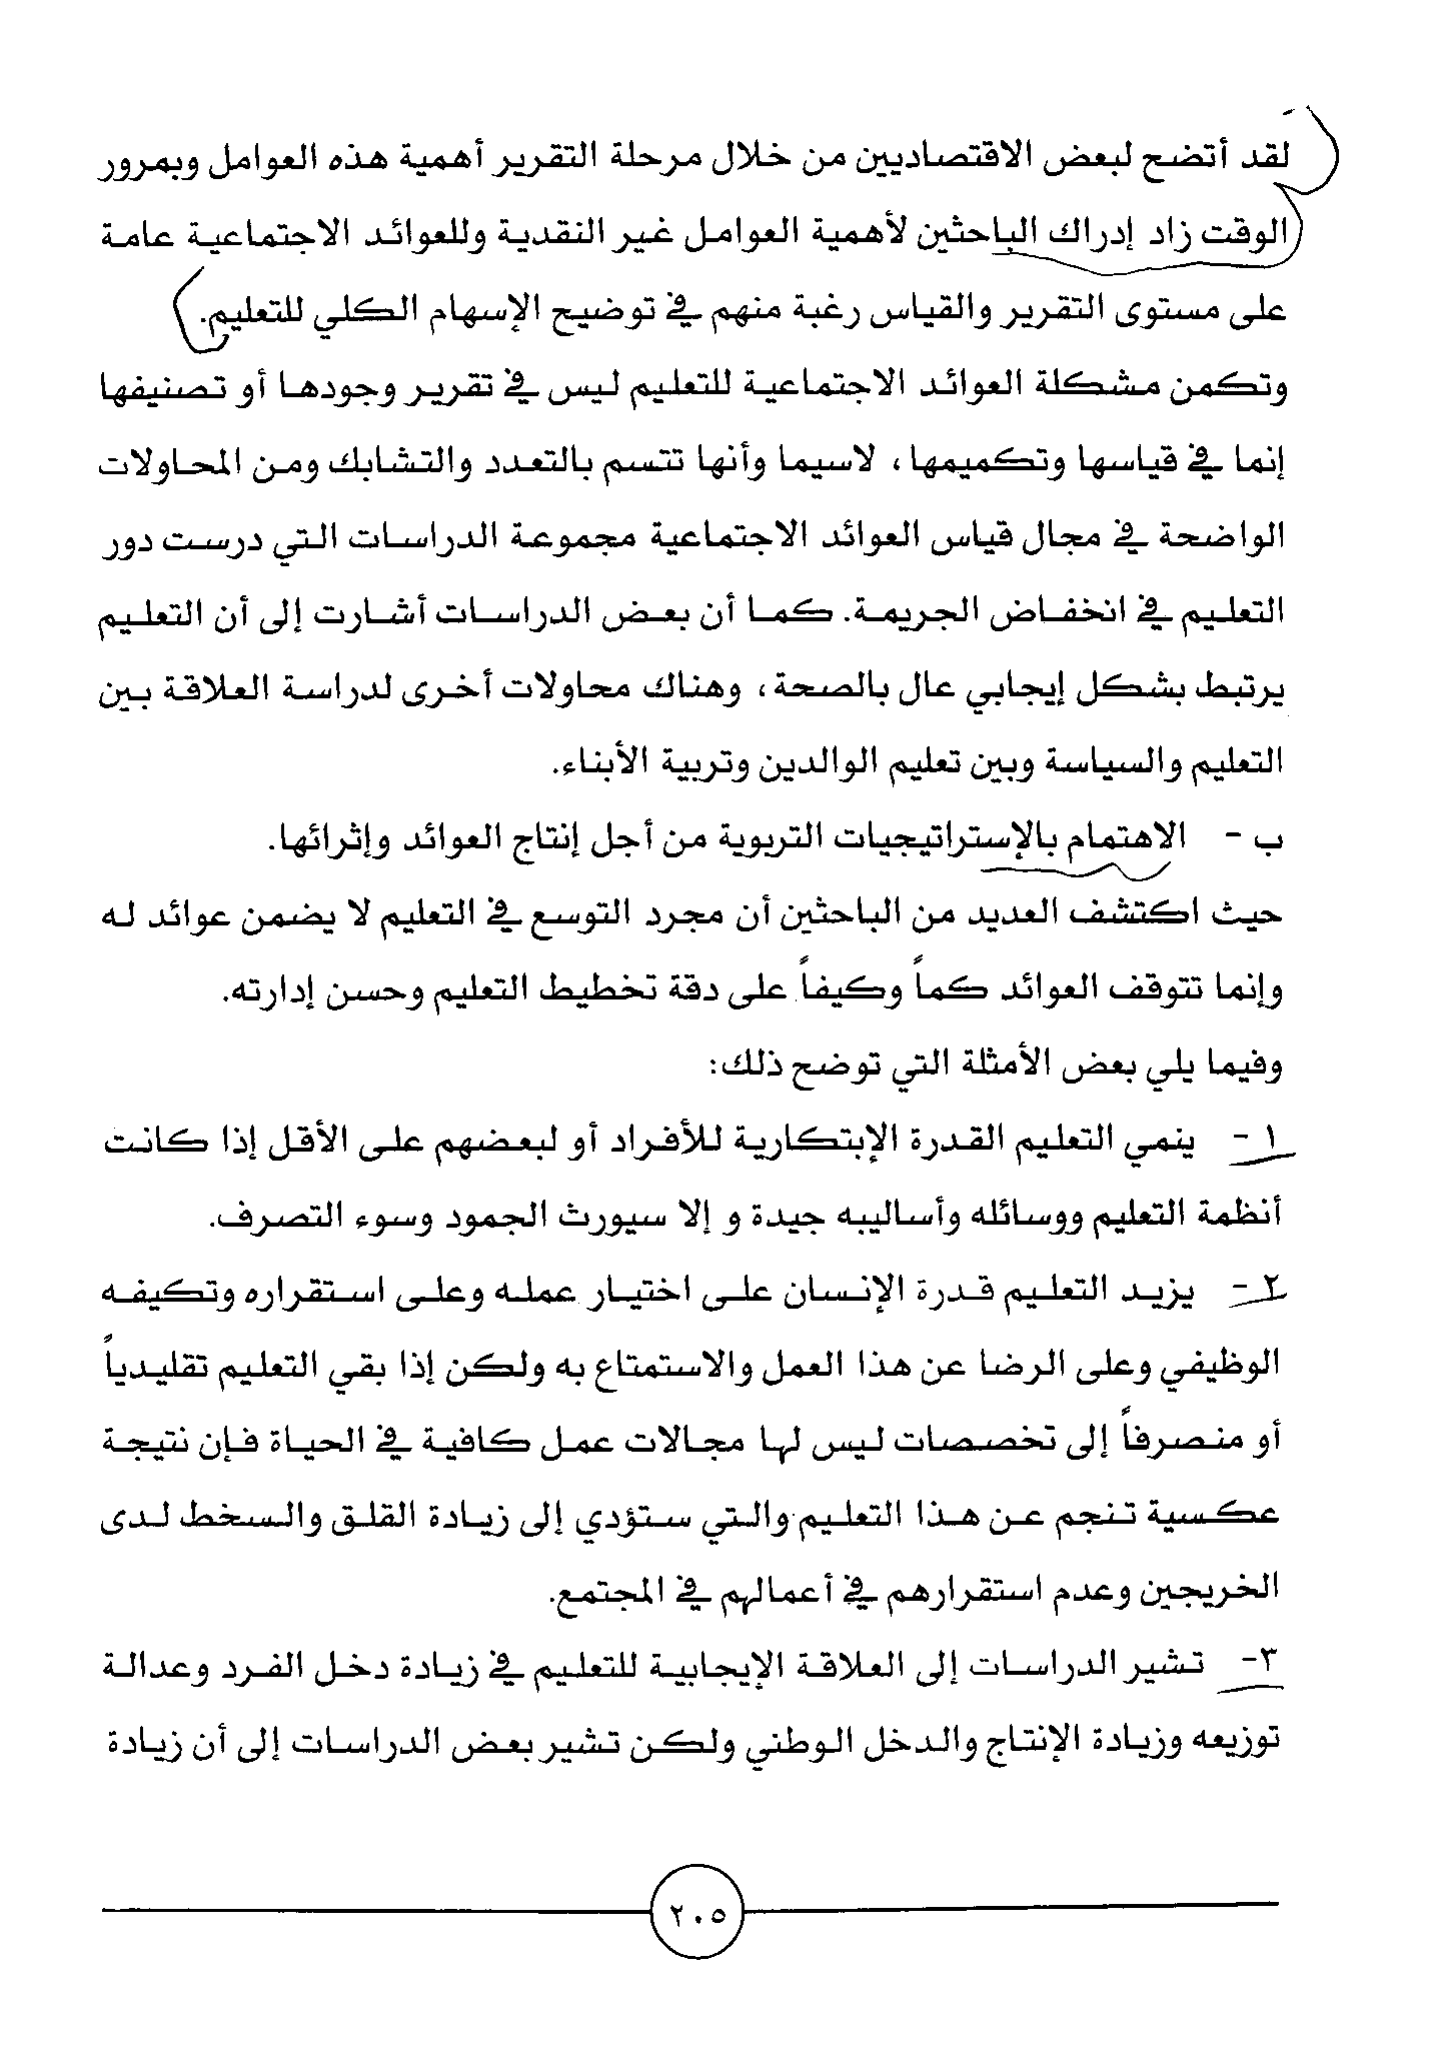 لقد أتضح لبعض الاقتصاديين من خلال مرحلة التقرير أهمية هذه العوامل وبمرور
الوقت زاد إدراك الباحثين لأهمية العوامل غير النقدية وللعوائد الاجتماعية عامة
على مستوى التقرير والقياس رغبة منهم في توضيح الإسهام الكلي للتعليم.
وتكمن مشكلة العوائد الاجتماعية للتعليم ليس في تقرير وجودها أو تصنيفها
إنما في قياسها وتكميمها، لاسيما وأنها تتسم بالتعدد والتشابك ومن المحاولات
الواضحة في مجال قياس العوائد الاجتماعية مجموعة الدراسات التي درست دور
التعليم في انخفاض الجريمة. كما أن بعض الدراسات أشارت إلى أن التعليم
يرتبط بشكل إيجابي عال بالصحة، وهناك محاولات أخرى لدراسة العلاقة بين
التعليم والسياسة وبين تعليم الوالدين وتربية الأبناء.
ب - الاهتمام بالإستراتيجيات التربوية من أجل إنتاج العوائد وإثرائها.
حيث اكتشف العديد من الباحثين أن مجرد التوسع في التعليم لا يضمن عوائد له
وإنما تتوقف العوائد كماً وكيفاً على دقة تخطيط التعليم وحسن إدارته.
وفيما يلي بعض الأمثلة التي توضح ذلك:
١ - ينمي التعليم القدرة الإبتكارية للأفراد أو لبعضهم على الأقل إذا كانت
أنظمة التعليم ووسائله وأساليبه جيدة و إلا سيورث الجمود وسوء التصرف.
٢- يزيد التعليم قدرة الإنسان على اختيار عمله وعلى استقراره وتكيفه
الوظيفي وعلى الرضا عن هذا العمل والاستمتاع به ولكن إذا بقي التعليم تقليدياً
أو منصرفاً إلى تخصصات ليس لها مجالات عمل كافية في الحياة فإن نتيجة
عكسية تنجم عن هذا التعليم والتي ستؤدي إلى زيادة القلق والسخط لدى
الخريجين وعدم استقرارهم في أعمالهم في المجتمع.
٣- تشير الدراسات إلى العلاقة الإيجابية للتعليم في زيادة دخل الفرد وعدالة
توزيعه وزيادة الإنتاج والدخل الوطني ولكن تشير بعض الدراسات إلى أن زيادة
٢٠٥